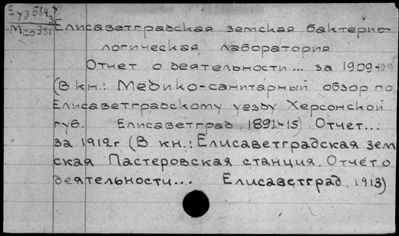 Елисаветградская земская бактерио-
логическая лаборатория
Отчет о деятельности... за 1909-
(В кн.: Медико-санитарный обзор по
Елисаветградскому уезду Херсонской
губ. Елисаветград 1891-15) Отчет...
за 1912г (В кн.: Елисаветградская зем
ская Пастеровская станция. Отчет о
деятельности... Елисаветград, 1913)